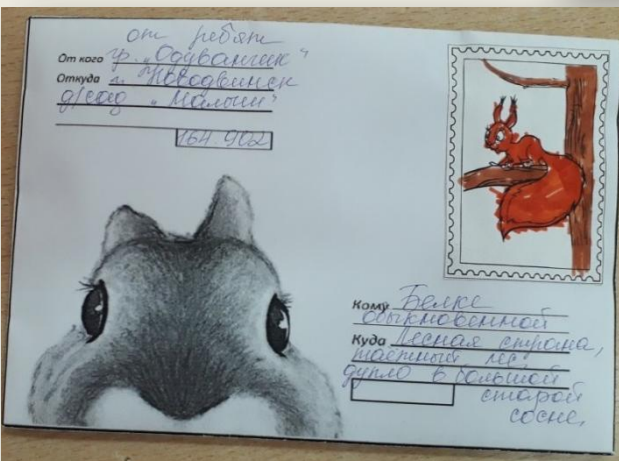 от ребят
От кого гр. „Одуванчик"
Откуда г. Новодвинск
д/сад „Малыш"
164.902
Кому Белке
обыкновенной
Куда Лесная страна,
таёжный лес
дупло в большой
старой
сосне,